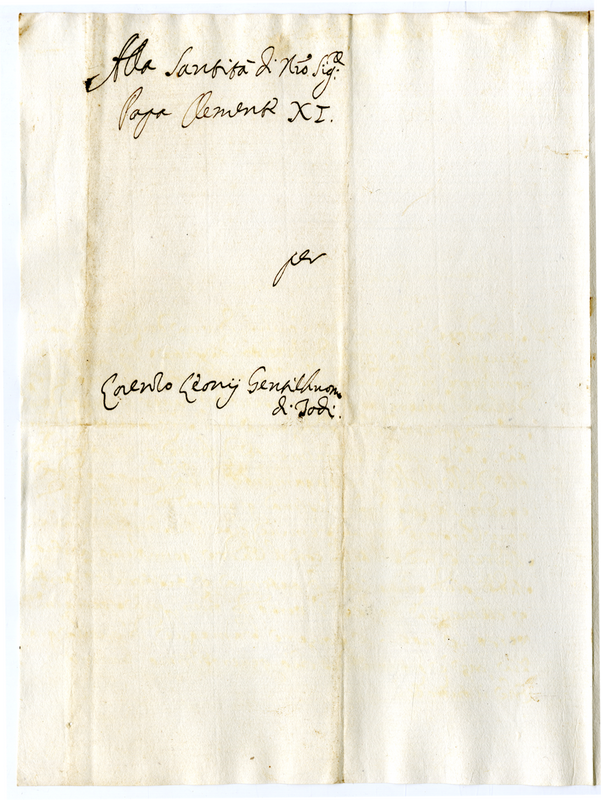 Alla Santità di Nro Sig.re
Papa Clemente XI.
per
Lorenzo Leonij Gentilhuomo
di Todi.